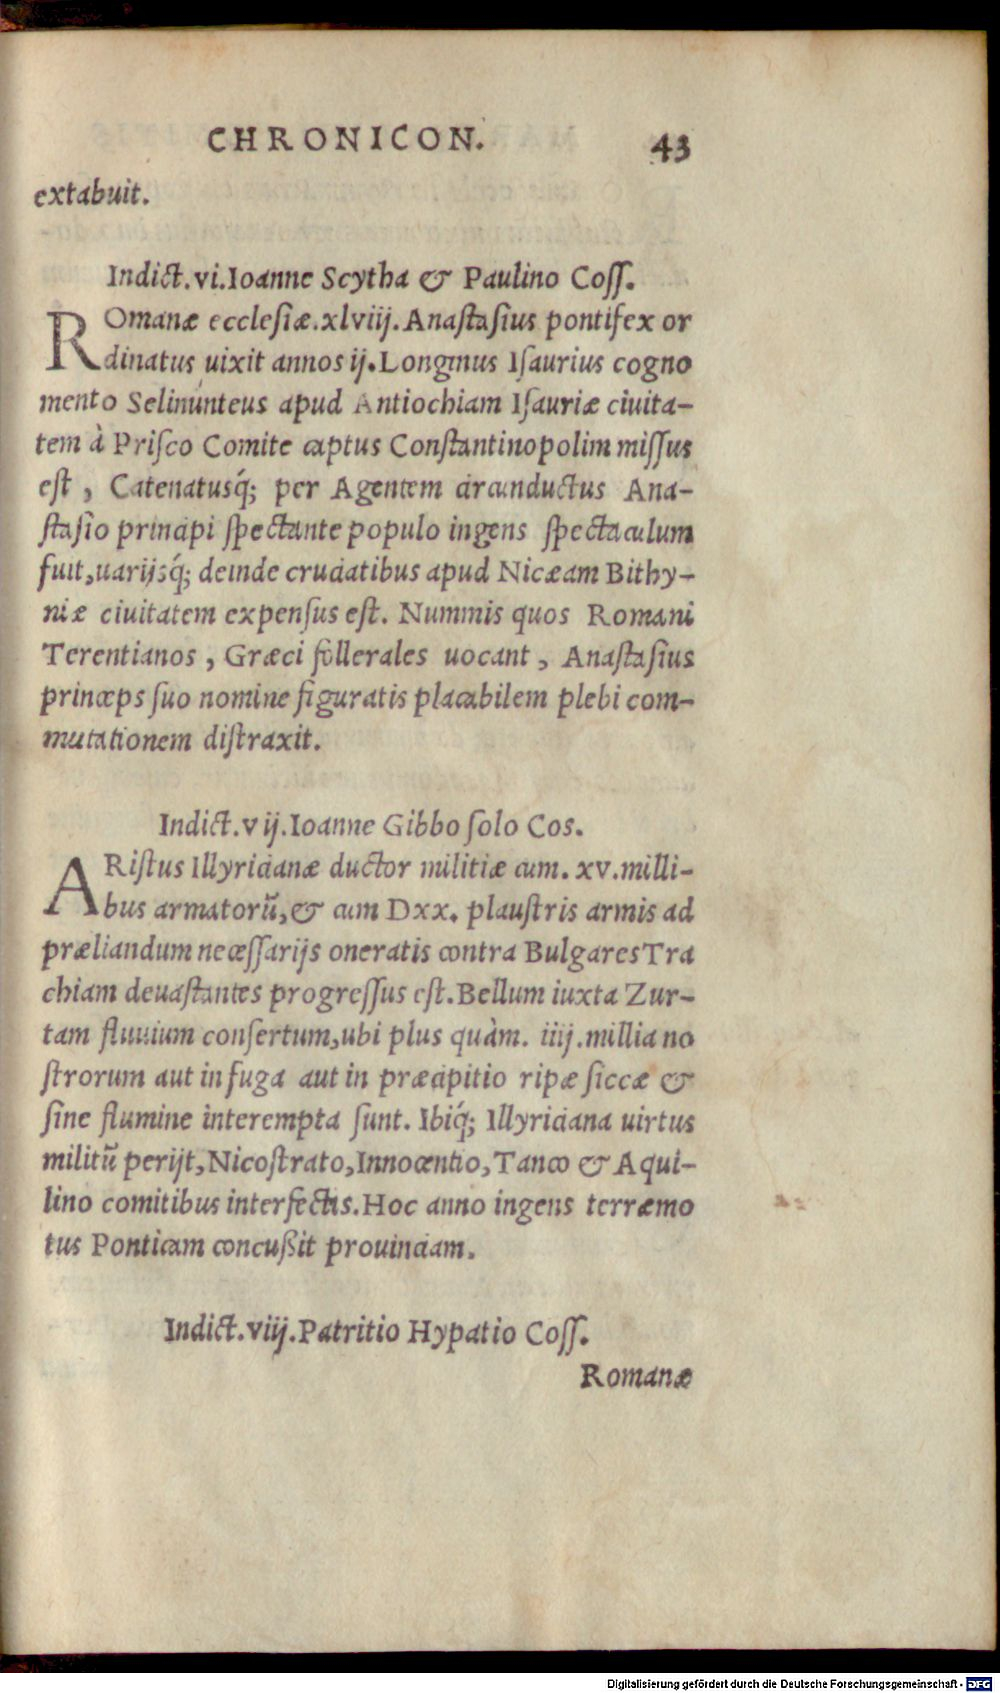 CHRONICON. 43
extabuit.
Indict.vi.Ioanne Scytha & Paulino Coſſ.
ROmanæ eccleſiæ.xlviij.Anaſtaſius pontifex or
dinatus uixit annos ij.Longinus Iſaurius cogno
mento Selinúnteus apud Antiochiam Iſauriæ ciuita-
tem à Priſco Comite captus Conſtantinopolim miſſus
eſt, Catenatusq́; per Agentem circunductus Ana-
ſtaſio principi ſpectante populo ingens ſpectaculum
fuit,uarijsq́; deinde cruciatibus apud Nicæam Bithy-
niæ ciuitatem expenſus eſt. Nummis quos Romani
Terentianos, Græci follerales uocant, Anaſtaſius
princeps ſuo nomine figuratis placabilem plebi com-
mutationem diſtraxit.
Indict.vij.Ioanne Gibbo ſolo Cos.
ARiſtus Illyricianæ ductor militiæ cum.xv.milli-
bus armatorũ,& cum Dxx. plauſtris armis ad
præliandum neceſſarijs oneratis contra Bulgares Tra
chiam deuaſtantes progreſſus eſt.Bellum iuxta Zur-
tam fluuium conſertum,ubi plus quàm. iiij.millia no
ſtrorum aut in fuga aut in præcipitio ripæ ſiccæ &
ſine flumine interempta ſunt. Ibiq́; Illyriciana uirtus
militũ perijt,Nicoſtrato,Innocentio,Tanco & Aqui-
lino comitibus interfectis.Hoc anno ingens terræmo
tus Ponticam concußit prouinciam.
Indict.viij.Patritio Hypatio Coſſ.
Romanæ
Digitalisierung gefördert durch die Deutsche Forschungsgemeinschaft - DFG